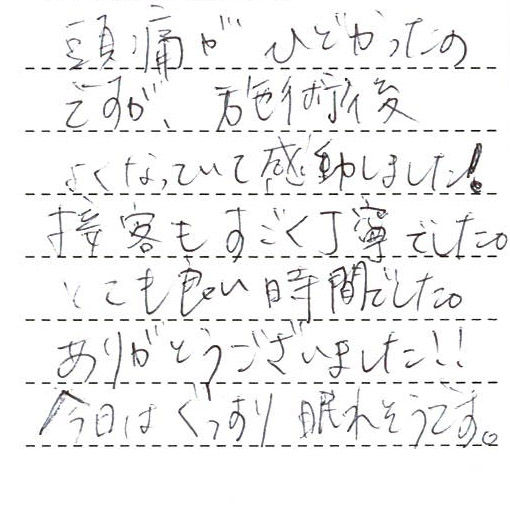 頭痛が ひどかったの
ですが、施術後
よくなっていて感動しました!
接客もすごく丁寧でした。
とても良い時間でした。
ありがとうございました!!
今日はぐっすり眠れそうです。